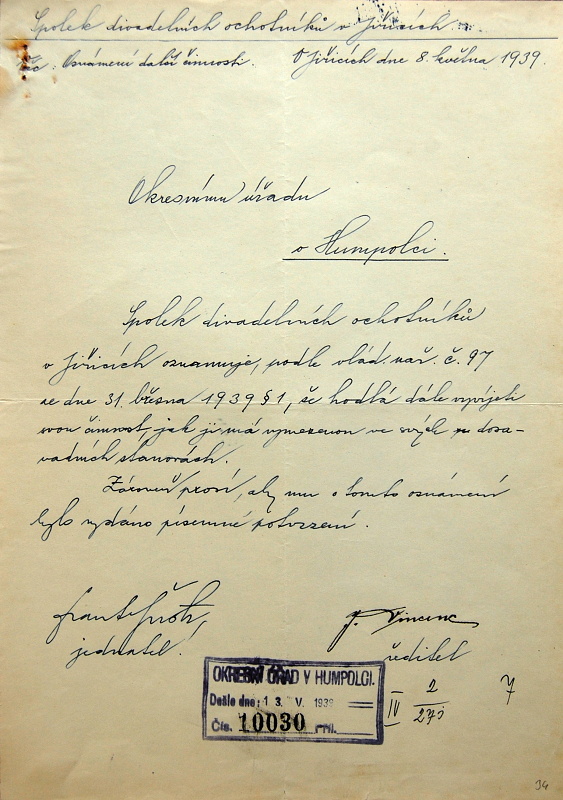 Spolek divadelních ochotníků v Jiřicích.
Věc: Oznámení další činnosti. V Jiřicích dne 8. května 1939.
Okresnímu úřadu
v Humpolci.
Spolek divadelních ochotníků
v Jiřicích oznamuje, podle vlád. nař. č. 97
ze dne 31. března 1939 § 1, že hodlá dále vyvíjeti
svou činnost, jak ji má vymezenou ve svých dosa-
vadních stanovách.
Zároveň prosí, aby mu o tomto oznámení
bylo vydáno písemné potvrzení.
J. Vincenc
jednatel. ředitel
OKRESNÍ ÚŘAD V HUMPOLCI.
Došlo dne: 13. V. 1939
Čís. 10030 Příl.
II 2 7
IV 275
34